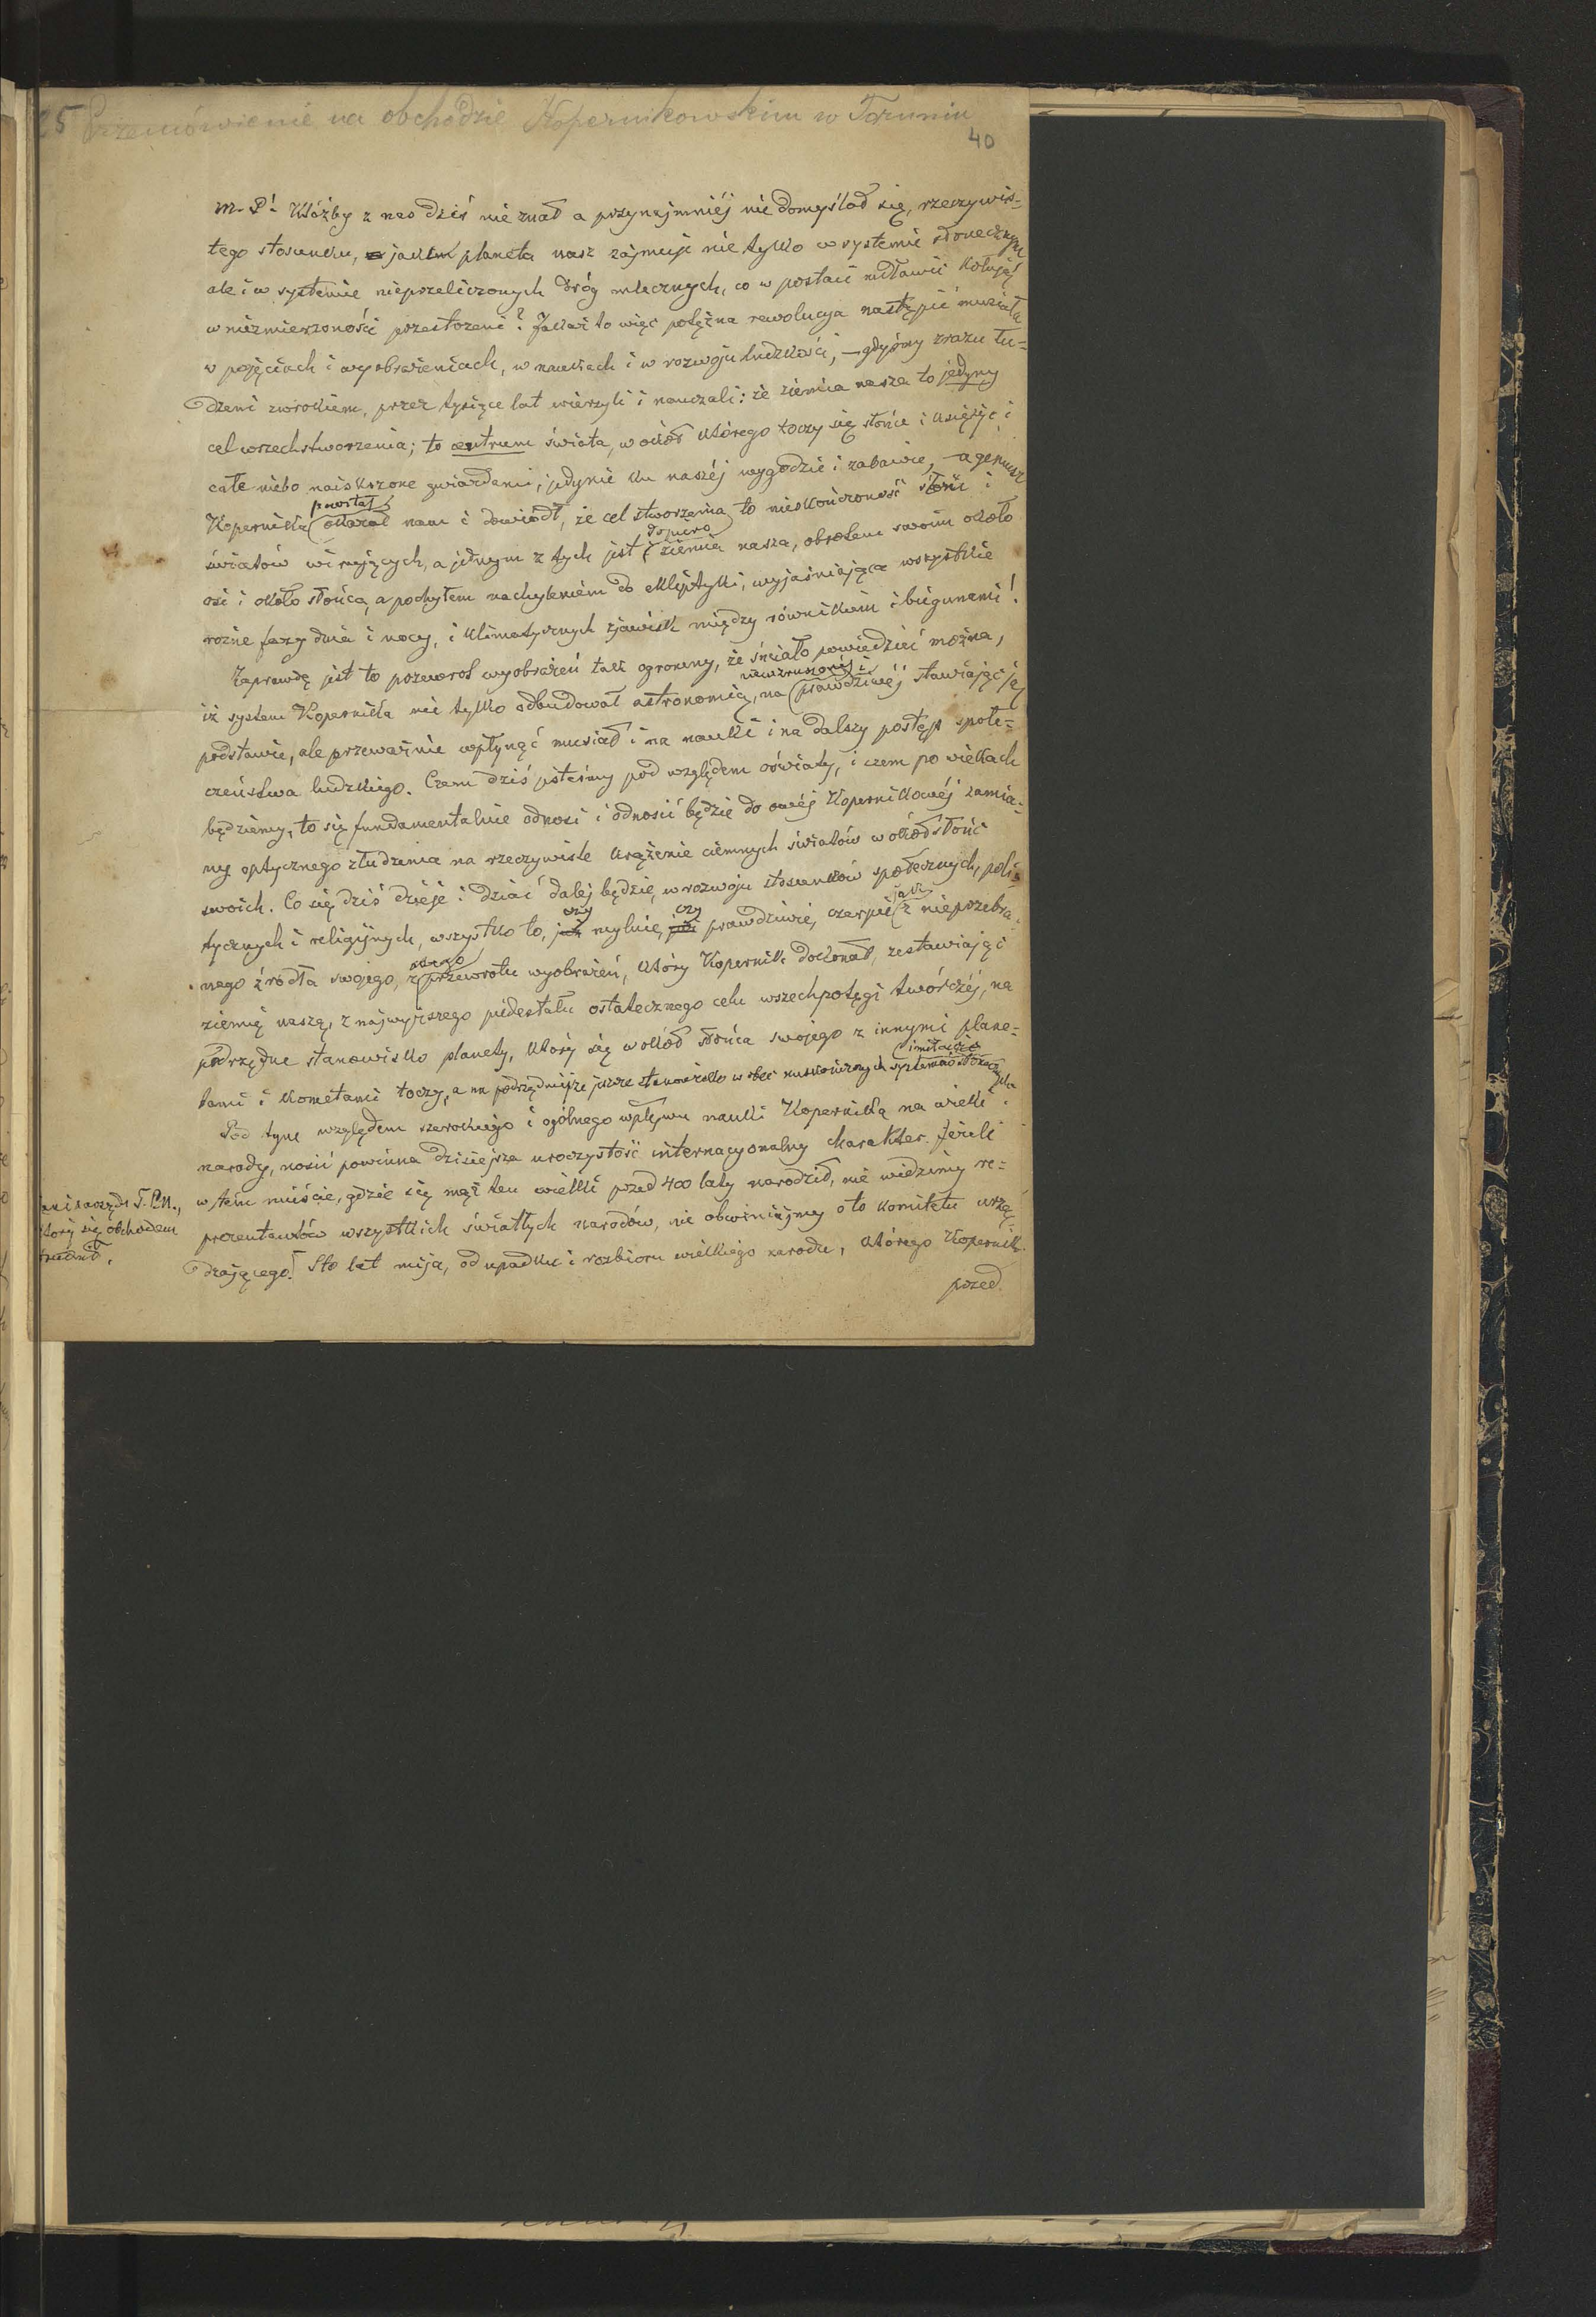 25 Przemówienie na obchodzie Kopernikowskim w Toruniu
40
M. P! Któżby z nas dziś nie znał a przynajmniéj nie domyślał się, rzeczywis=
tego stosunku, jaki planeta nasz zajmuje nie tylko w systemie słonecznym
ale i w systemie nieprzeliczonych dróg mlecznych, co w postaci mgławic kołują
w niezmierzoności przestrzeni? Jakaż to więc potężna rewolucya nastąpić musiała
w pojęciach i wyobrażeniach, w naukach i w rozwoju ludzkości, – gdyśmy zrazu łu=
dzeni wzrokiem, przez tysiące lat wierzyli i nauczali: że ziemia nasza to jedyny
cel wszechstworzenia; to centrum świata, wokół którego toczy się słońce i księżyc i
całe niebo naiskrzone gwiazdami, jedynie ku naszéj wygodzie i zabawie, – a geniusz
powstał
Kopernika okazał nam i dowiódł, że cel stworzenia to nieskończoność słońc i
dopiero
światów wirujących, a jednym z tych jest ziemia nasza, obrotem swoim około
osi i około słońca, a pochyłem nachyleniem do ekliptyki, wyjaśniająca wszystkie
rozne fazy dnia i nocy, i klimatycznych zjawisk między równikiem i biegunami!
Zaprawdę jest to przewrot wyobrażeń tak ogromny, że śmiało powiedzieć można,
niewzruszonéj i
iż system Kopernika nie tylko odbudował astronomią, na prawdziwéj stawiając ją
podstawie, ale przeważnie wpłynąć musiał i na nauki i na dalszy postęp społe=
czeństwa ludzkiego. Czem dziś jesteśmy pod względem oświaty, i czem po wiekach
będziemy, to się fundamentalnie odnosi i odnosić będzie do owéj Kopernikowéj zamia=
ny optycznego złudzenia na rzeczywiste krążenie ciemnych światów wokół słońc
swoich. Co się dziś dzieje i dziać dalej będzie, w rozwoju stosunków społecznych, poli=
czy czy jak
tycznych i religijnych, wszystko to, mylnie, prawdziwie, czerpie z nieprzebra=
nego źródła swojego, z przewrotu wyobrażeń, który Kopernik dokonał, zestawiając
ziemię naszą, z najwyższego piedestału ostatecznego celu wszechpotęgi twórczéj, na
podrzędne stanowisko planety, który się wokół słońca swojego z innymi plane=
tami i kometami toczy, a na podrzędniejsze jeszcze stanowisko wobec nieskończonych systemów słonecznych
Pod tym względem szerokiego i ogólnego wpływu nauki Kopernika na wieki i
narody, nosić powinna dzisiejsza uroczystość internacyonalny charakter. Jeżeli
w tem mieście, gdzie się mąż ten wielki przed 400 laty narodził, nie widzimy re=
prezentantów wszystkich światłych narodów, nie obwiniajmy o to komitetu urzą=
dzającego. Sto lat mija, od upadku i rozbioru wielkiego narodu, którego Kopernik
przed
ani zarządu T. P. N.,
który się obchodem
trudnił.